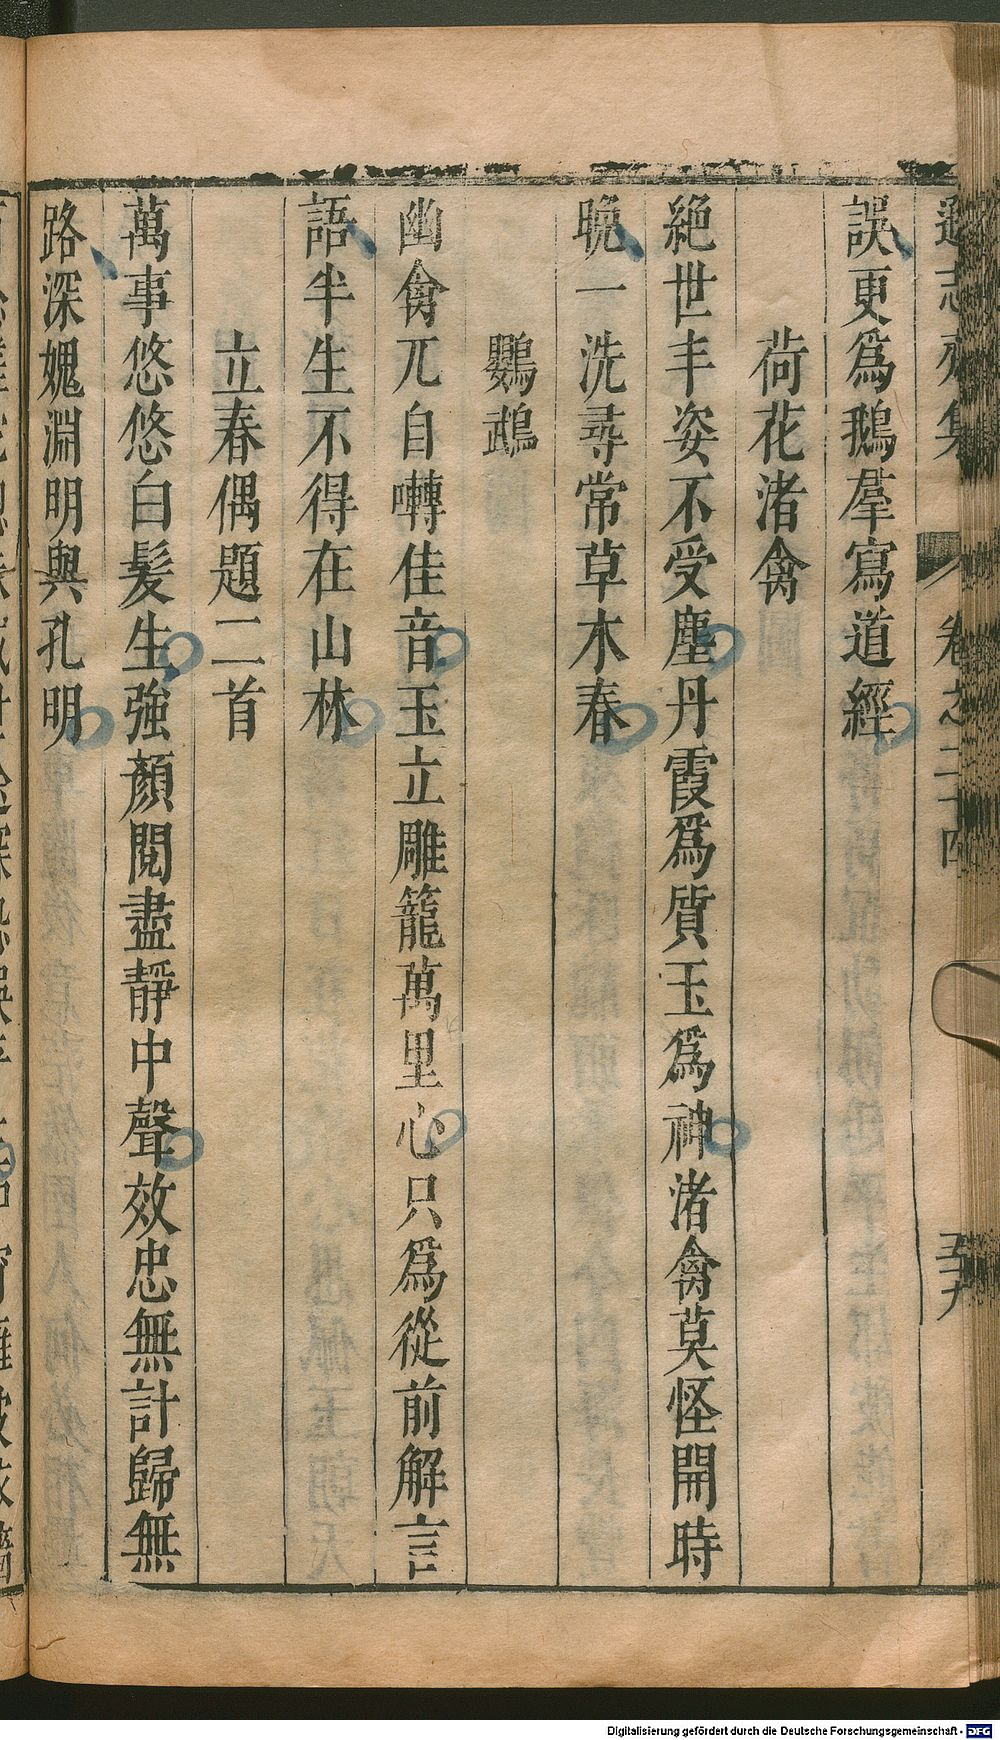 遜志齋集　卷之二十四　五十九
誤更爲鵝羣寫道經
荷花渚禽
絶世丰姿不受塵丹霞爲質玉爲神渚禽莫怪開時
晚一洗尋常草木春
鸚鵡
幽禽兀自囀佳音玉立雕籠萬里心只爲從前解言
語半生不得在山林
立春偶題二首
萬事悠悠白髮生強顏閱盡靜中聲效忠無計歸無
路深媿淵明與孔明
Digitalisierung gefördert durch die Deutsche Forschungsgemeinschaft - DFG